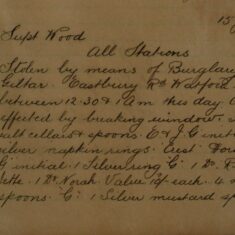 15
Supt Wood
All Stations
Stolen by means of Burglar
Giltar. Eastbury Rd Watford.
between 12.30 & 1 am this day.
effected by breaking window.
salt cellars & spoons E & J G init
silver napkin rings.
G initial. 1 Silver ring G. 1 Do.
1 Do. Norah. Value 12/- each. 4
spoons. G. 1 Silver mustard sp